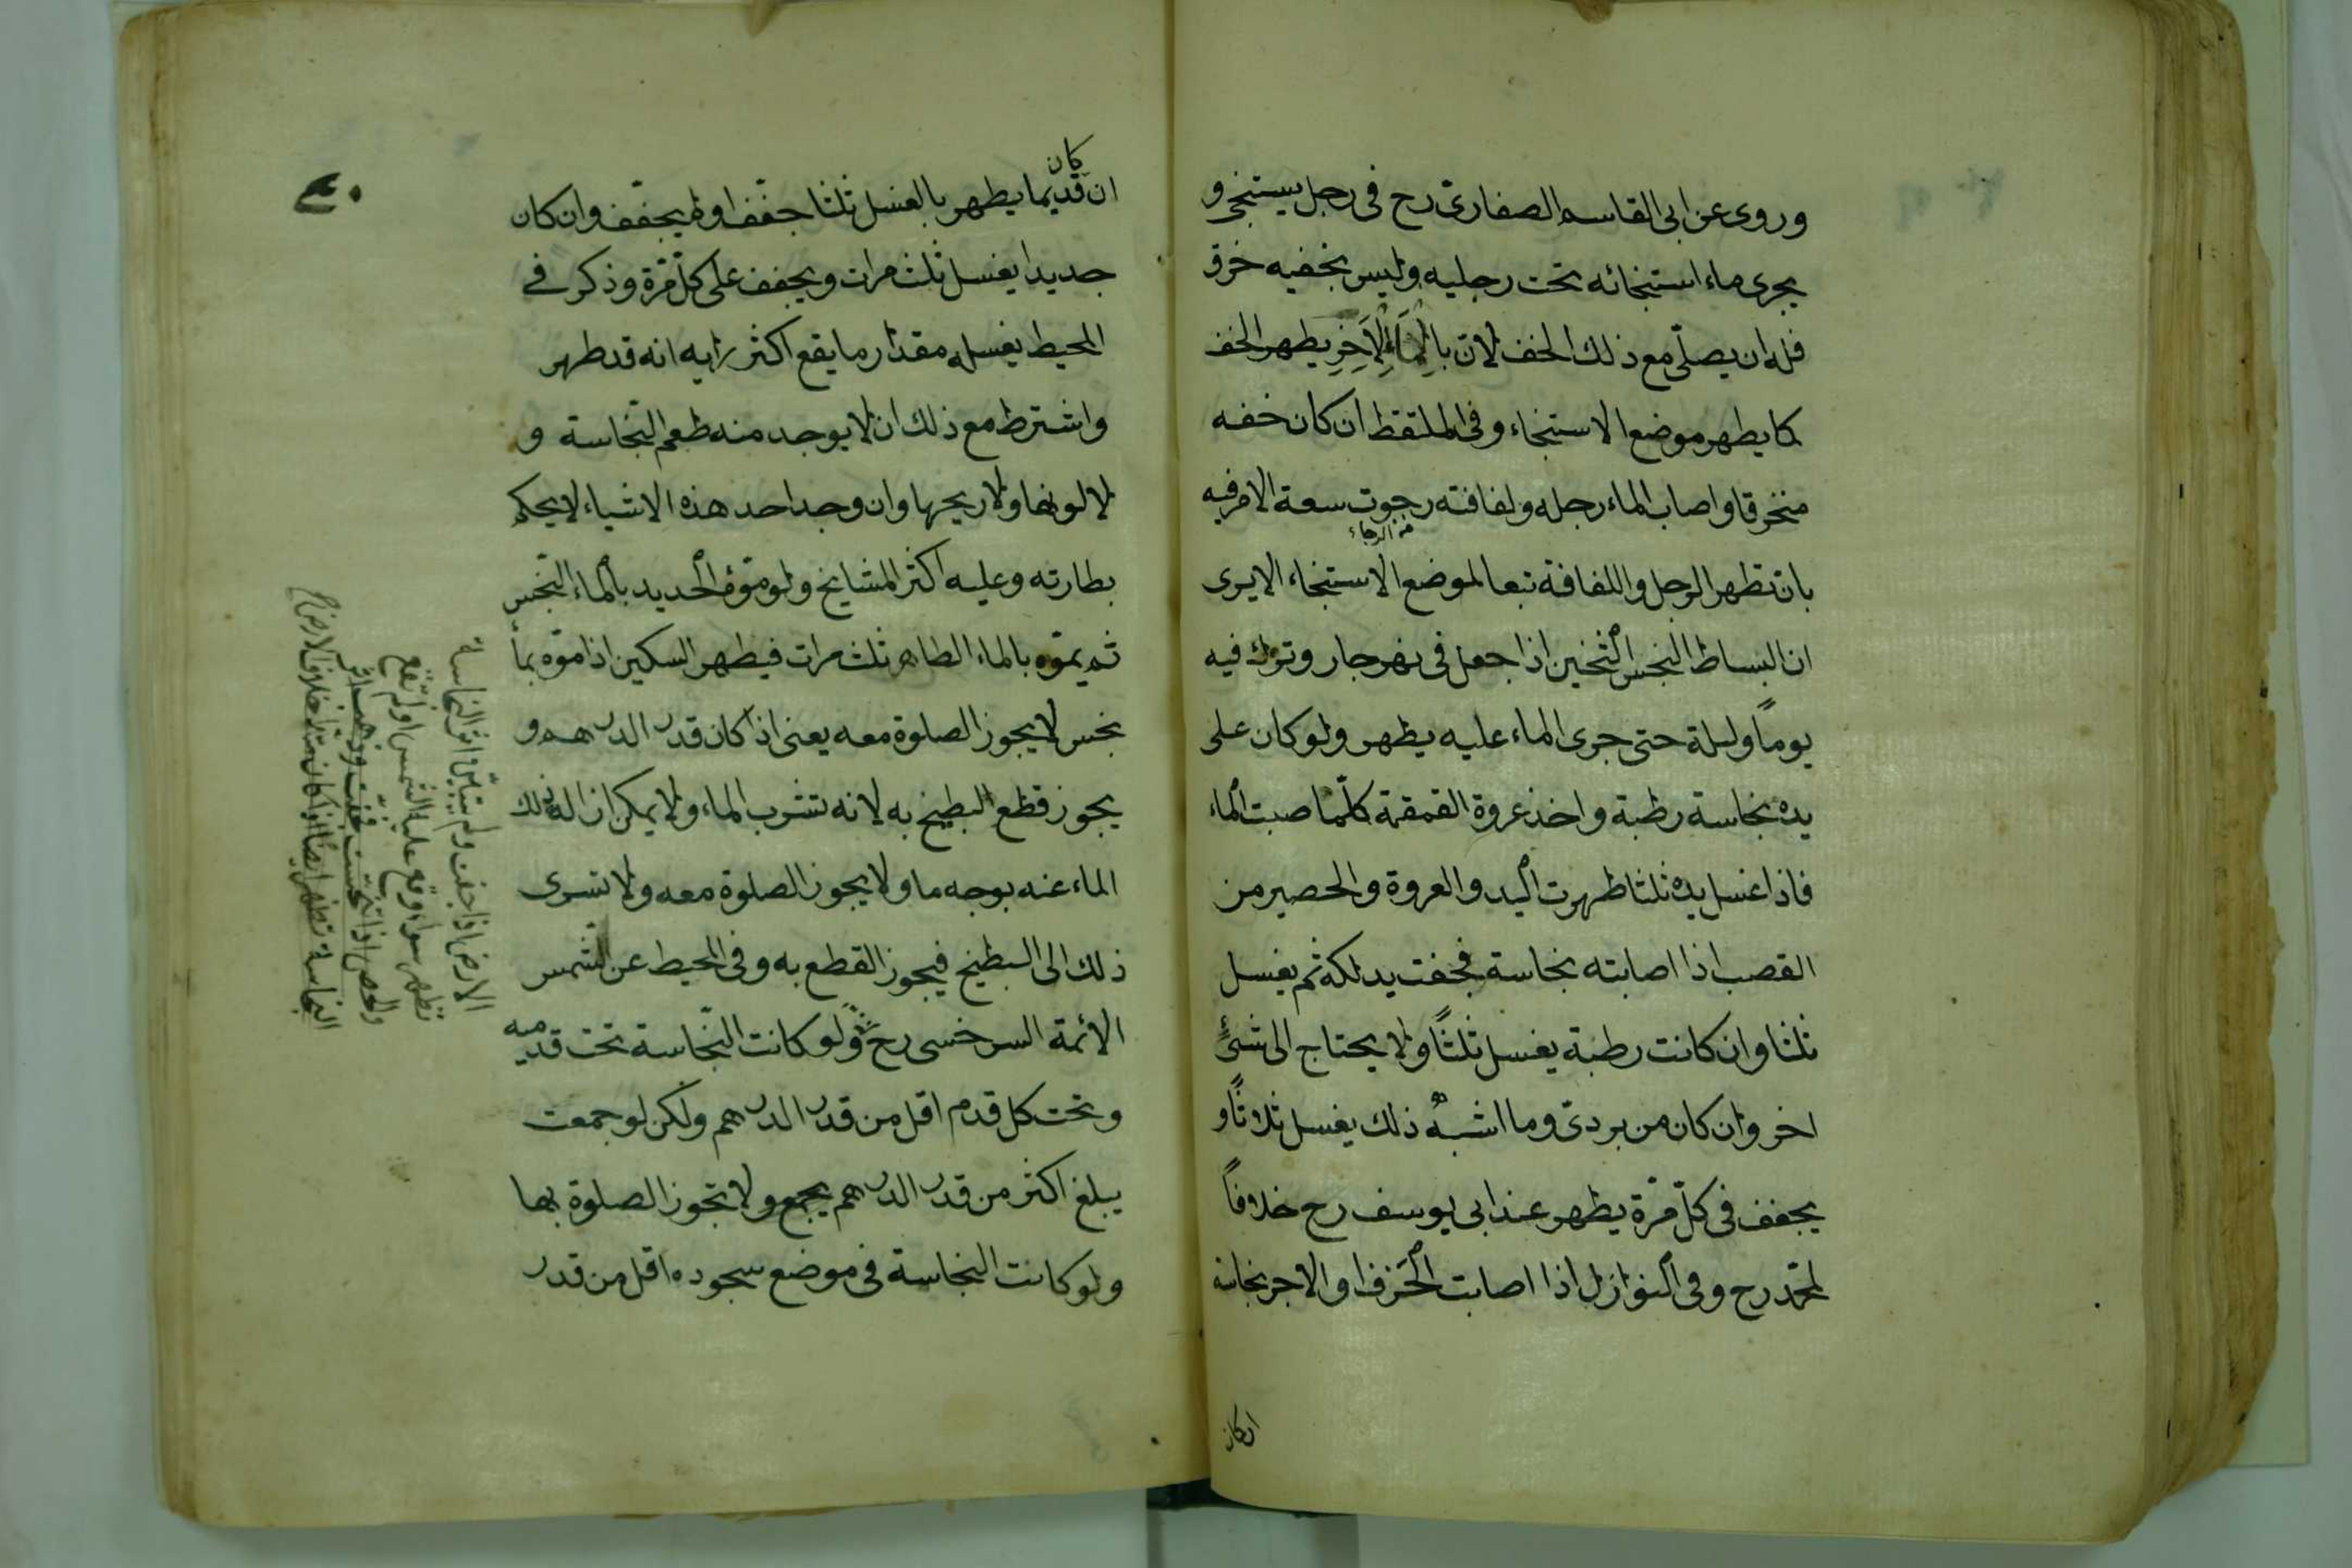 وروى عن ابى القاسم الصفارى رح فى رجل يستنجى و
يجرى ماء استنجائه تحت رجليه وليس بخفيه خرق
فله ان يصلّى مع ذلك الخف لان بالماء الاخر يطهر الخف
كما يطهر موضع الاستنجاء وفى الملتقط ان كان خفه
منخرقا واصاب الماء رجله ولفافته رجوت سعة الامر فيه
من الرجاء
بان تطهر الرجل واللفافة تبعا لموضع الاستنجاء الا يرى
ان البساط النجس الثخين اذا جعل فى نهر جار وترك فيه
يوماً وليلة حتى جرى الماء عليه يطهر ولو كان على
يده نجاسة رطبة واخذ عروة القمقمة كلّما صبت الماء
فاذا غسل يده ثلثا طهرت اليد والعروة والحصير من
القصب اذا اصابته نجاسة فجفت يدلكه ثم يغسل
ثلثا وان كانت رطبة يغسل ثلثاً ولا يحتاج الى شئ
اخر وان كان من بردىّ وما اشبه ذلك يغسل ثلاثاً و
يجفف فى كلّ مّرة يطهر عند ابى يوسف رح خلافاً
لمحمّد رح وفى النوازل اذا اصابت الخزف او الاجر نجاسة
ان كان
كان
ان قديما يطهر بالغسل ثلثا جفف او لم يجفف وان كان
جديدا يغسل ثلث مرات ويجفف على كلّ مّرة وذكر فى
المحيط يغسله مقدار ما يقع اكثر رايه انه قد طهر
واشترط مع ذلك ان لا يوجد منه طعم النجاسة و
لا لونها ولا ريحها وان وجد احد هذه الاشياء لا يحكم
بطارته وعليه اكثر المشايخ ولو موّه الحديد بالماء النجس
ثم يموّه بالماء الطاهر ثلث مرات فيطهر السكين اذا موّه بما
نجس لا يجوز الصلوة معه يعنى اذا كان قدر الدرهم و
يجوز قطع البطيخ به لانه تشرب الماء ولا يمكن ازالة ذلك
الماء عنه بوجه ما ولا يجوز الصلوة معه ولا تسرى
ذلك الى البطيخ فيجوز القطع به وفى المحيط عن الشمس
الائمة السرخسى رح ولو كانت النّجاسة تحت قدميه
وتحت كل قدم اقل من قدر الدرهم ولكن لو جمعت
يبلغ اكثر من قدر الدرهم يجمع ولا تجوز الصلوة بها
ولو كانت النجاسة فى موضع سجوده اقل من قدر
الارض اذا جفت ولم يتبيّن اثر النجاسة
تطهر سواء وقع عليه الشمس او لم تقع
والحصى اذا تنجست فجفت وذهب اثر
النجاسة تطهر ايضا اذا كان متداخلا فى الارض